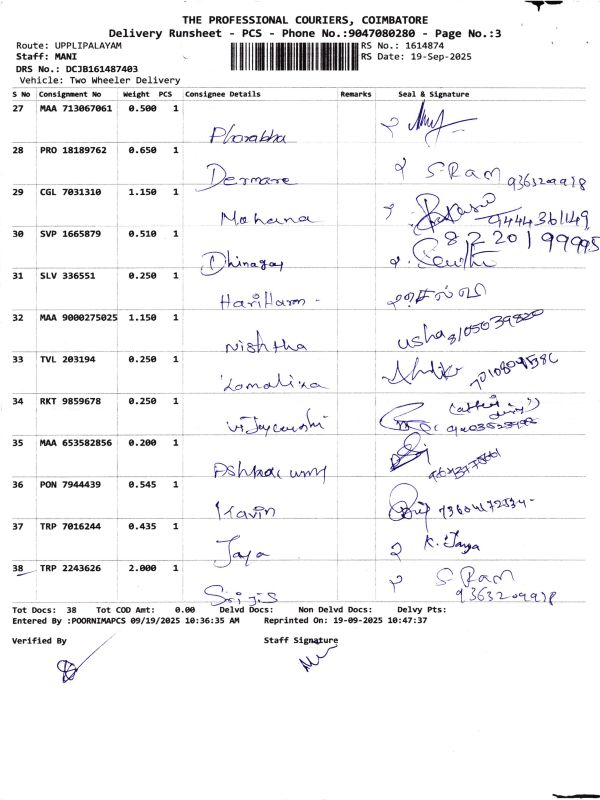 THE PROFESSIONAL COURIERS, COIMBATORE
Delivery Runsheet - PCS - Phone No.:9047080280 - Page No.:3
Route: UPPLIPALAYAM RS No.: 1614874
Staff: MANI RS Date: 19-Sep-2025
DRS No.: DCJB161487403
Vehicle: Two Wheeler Delivery
S No Consignment No Weight PCS Consignee Details Remarks Seal & Signature
27 MAA 713067061 0.500 1
28 PRO 18189762 0.650 1
S-RAM
29 CGL 7031310 1.150 1
Mohana 9444361149
30 SVP 1665879 0.510 1
Dhinagar
31 SLV 336551 0.250 1
HariHaran
32 MAA 9000275025 1.150 1
Nishtha usha
33 TVL 203194 0.250 1
34 RKT 9859678 0.250 1
35 MAA 653582856 0.200 1
36 PON 7944439 0.545 1
Kavin
37 TRP 7016244 0.435 1
Jaya K. Jaya
38 TRP 2243626 2.000 1
S-RAM
Tot Docs: 38 Tot COD Amt: 0.00 Delvd Docs: Non Delvd Docs: Delvy Pts:
Entered By :POORNIMAPCS 09/19/2025 10:36:35 AM Reprinted On: 19-09-2025 10:47:37
Verified By Staff Signature